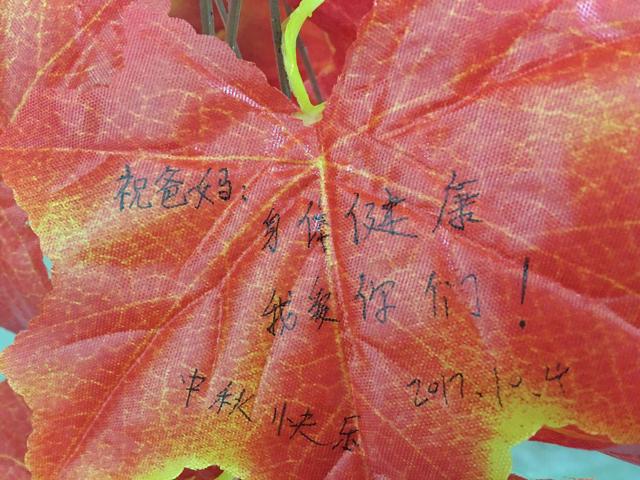 祝爸妈：
身体健康
我爱你们！
中秋快乐
2017.10.4